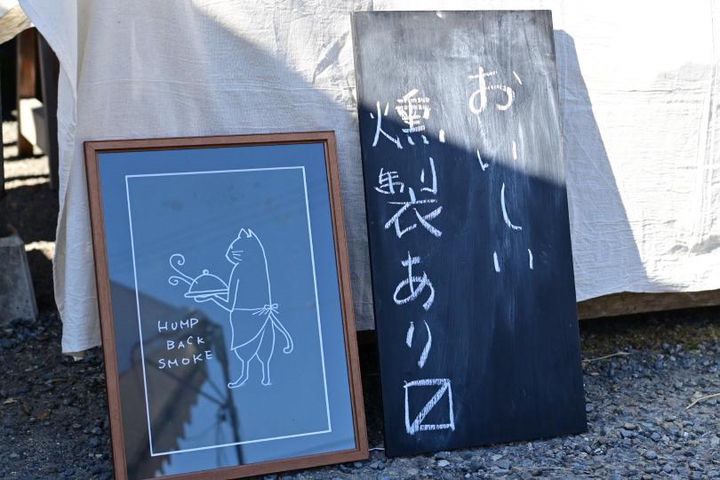 HUMP
BACK
SMOKE
おいしい
燻製あり〼